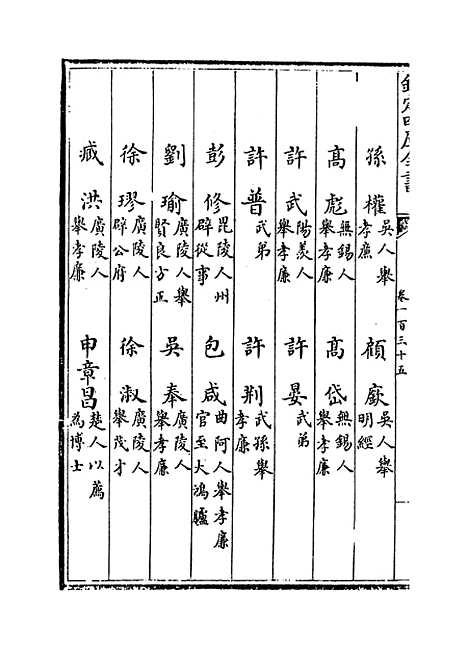 欽定四庫全書
卷一百三十五
孫權吳人舉孝廉 顧厭吳人舉明經
高彪無錫人舉孝廉 高岱無錫人舉孝廉
許武陽羨人舉孝廉 許晏武弟
許普武弟 許荆武孫舉孝廉
彭修毘陵人州辟從事 包咸曲阿人舉孝廉官至大鴻臚
劉瑜廣陵人舉賢良方正 吳奉廣陵人舉孝廉
徐璆廣陵人辟公府 徐淑廣陵人舉茂才
臧洪廣陵人舉孝廉 申章昌楚人以薦為博士